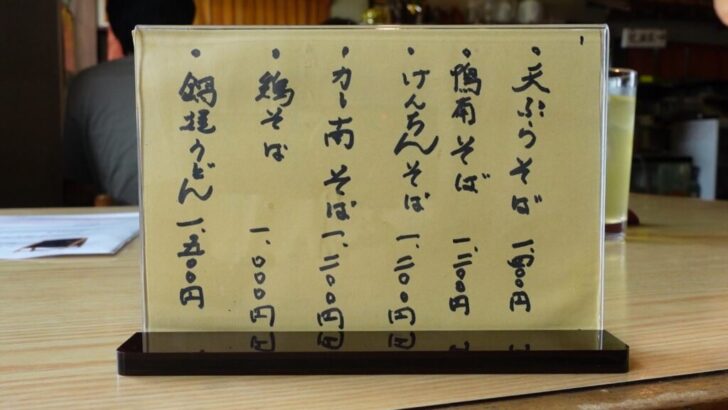 ・天ぷらそば 一、四〇〇円
・鴨南そば 一、二〇〇円
・けんちんそば 一、二〇〇円
・カレー南そば 一、二〇〇円
・鶏そば 一、〇〇〇円
・鍋焼うどん 一、五〇〇円